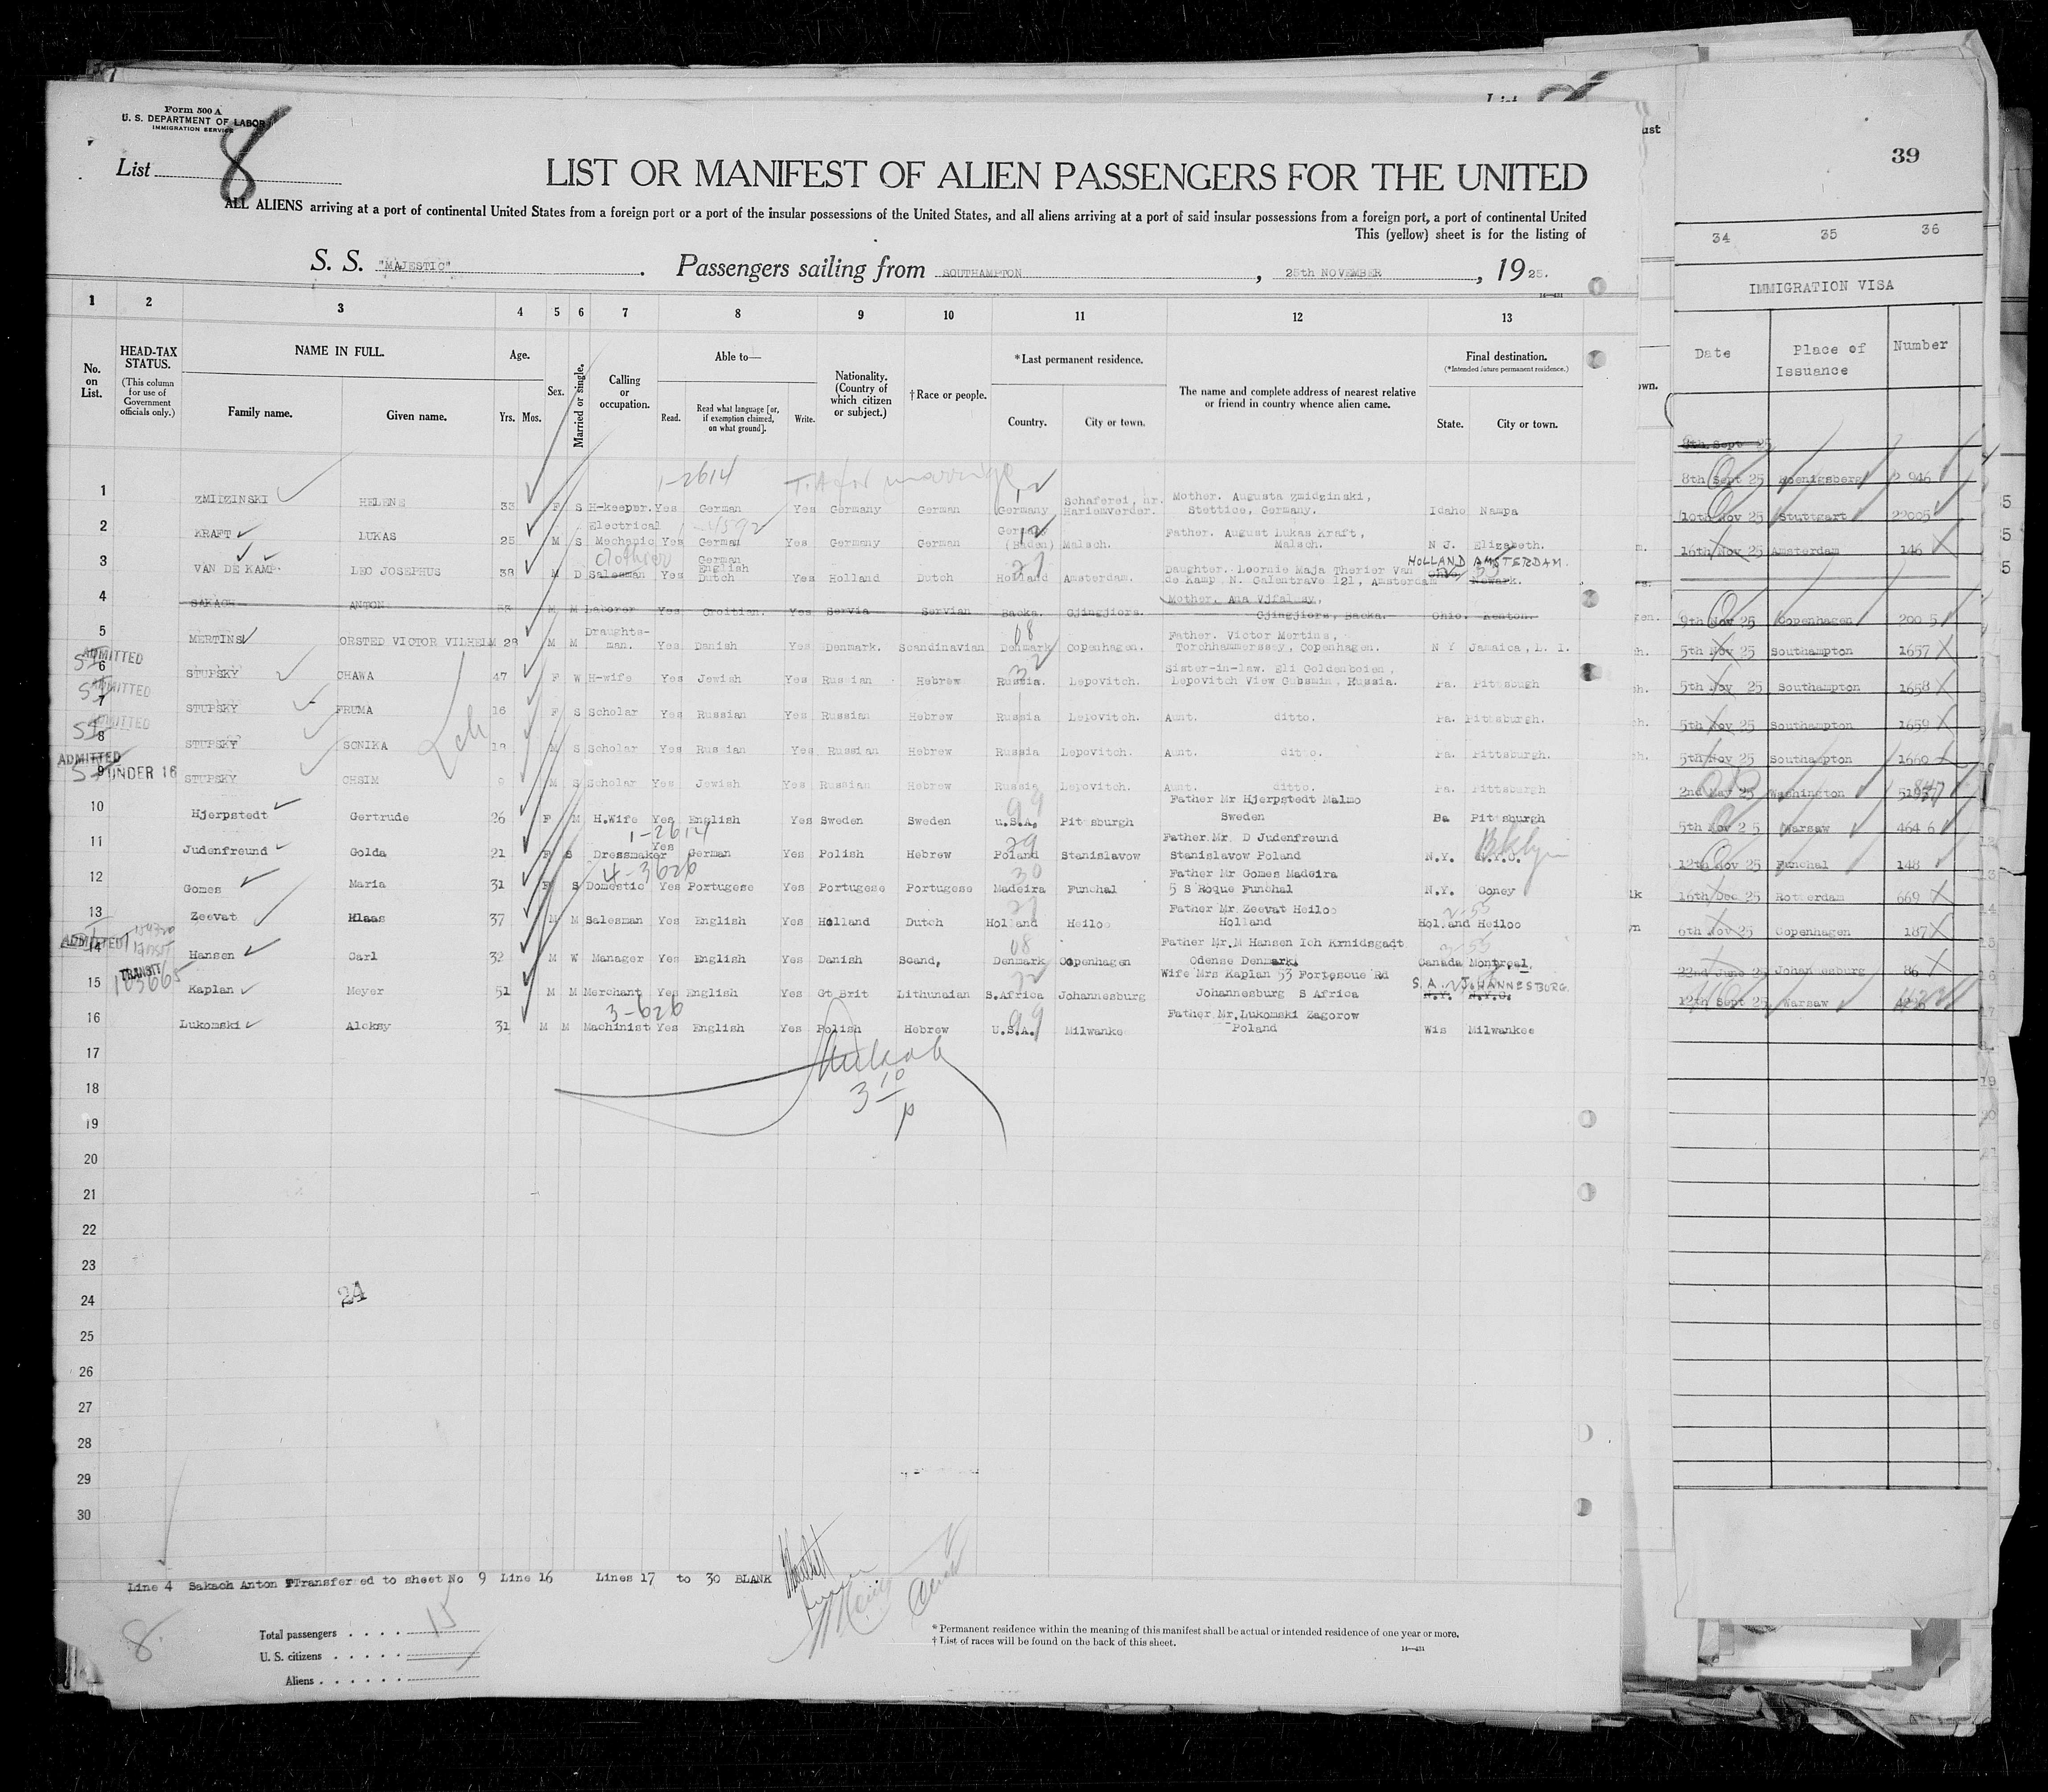 Form 500 A
U. S. DEPARTMENT OF LABOR
IMMIGRATION SERVICE
List 8
LIST OR MANIFEST OF ALIEN PASSENGERS FOR THE UNITED
ALL ALIENS arriving at a port of continental United States from a foreign port or a port of the insular possessions of the United States, and all aliens arriving at a port of said insular possessions from a foreign port, a port of continental United
This (yellow) sheet is for the listing of
S. S. "MAJESTIC" . Passengers sailing from SOUTHAMPTON , 25th NOVEMBER , 1925.
14—431
1 2 3 4 5 6 7 8 9 10 11 12 13
No. on List. HEAD-TAX STATUS. (This column for use of Government officials only.) NAME IN FULL. Family name. Given name. Age. Yrs. Mos. Sex. Married or single. Calling or occupation. Able to— Read. Read what language [or, if exemption claimed, on what ground]. Write. Nationality. (Country of which citizen or subject.) † Race or people. * Last permanent residence. Country. City or town. The name and complete address of nearest relative or friend in country whence alien came. Final destination. (*Intended future permanent residence.) State. City or town.
1-2614
1 ZMIDZINSKI HELENE 33 F S H-keeper. Yes German Yes Germany German Germany Schaferei, nr. Mother. Augusta Zmidzinski, Stettice, Germany. Idaho Nampa
2 KRAFT LUKAS 25 M S Electrical Mechanic Yes German Yes Germany German (Baden) Malsch. Father. August Lukas Kraft, Malsch. N J. Elizabeth.
3 VAN DE KAMP. LEO JOSEPHUS 38 M D Salesman Yes German English Dutch Yes Holland Dutch Holland Amsterdam. Daughter. Leornie Maja Therier Van de Kamp N. Galentrave 121, Amsterdam HOLLAND AMSTERDAM. Ohio. Newark.
4 SAKACH ANTON M M Laborer Yes Croitian. Yes Servia Servian Backa. Gjingjiors. Mother. Ana Vjfalusy, Gjingjiors, Backa. Ohio. Kenton.
5 MERTINS ORSTED VICTOR VILHELM 28 M M Draughts-man. Yes Danish Yes Denmark. Scandinavian Denmark Copenhagen. Father. Victor Mertins, Torchhammerssey, Copenhagen. N Y Jamaica, L. I.
ADMITTED
6 STUPSKY CHAWA 47 F W H-wife Yes Jewish Yes Russian Hebrew Russia. Lepovitch. Sister-in-law. Eli Goldenboien, Lepovitch View Gubsmin, Russia. Pa. Pittsburgh
ADMITTED
7 STUPSKY FRUMA 16 F S Scholar Yes Russian Yes Russian Hebrew Russia Lepovitch. Aunt. ditto. Pa. Pittsburgh.
ADMITTED
8 STUPSKY SONIKA 18 M S Scholar Yes Russian Yes Russian Hebrew Russia Lepovitch. Aunt. ditto. Pa. Pittsburgh.
ADMITTED
9 UNDER 16 STUPSKY CHSIM 9 M S Scholar Yes Jewish Yes Russian Hebrew Russia Lepovitch. Aunt. ditto. Pa. Pittsburgh
10 Hjerpstedt Gertrude 26 F M H.Wife Yes English Yes Sweden Sweden U.S.A. Pittsburgh Father Mr Hjerpstedt Malmo Sweden Pa Pittsburgh
1-2614
11 Judenfreund Golda 21 F S Dressmaker Yes German Yes Polish Hebrew Poland Stanislavow Father Mr. D Judenfreund Stanislavow Poland N.Y. N.Y.C. Bklyn
4-3626
12 Gomes Maria 31 F S Domestic Yes Portugese Yes Portugese Portugese Madeira Funchal Father Mr Gomes Madeira 5 S Roque Funchal N.Y. Coney
13 Zeevat Klaas 37 M M Salesman Yes English Yes Holland Dutch Holland Heiloo Father Mr. Zeevat Heiloo Holland Holland Heiloo
ADMITTED
14 Hansen Carl 32 M W Manager Yes English Yes Danish Scand, Denmark Copenhagen Father Mr.M Hansen Ich Krnidsgadt Odense Denmark Canada Montreal,
TRANSIT
15 Kaplan Meyer 51 M M Merchant Yes English Yes Gt Brit Lithunaian S.Africa Johannesburg Wife Mrs Kaplan 53 Fortescue Rd Johannesburg S Africa S.A. JOHANNESBURG. N.Y. N.Y.C.
3-626
16 Lukomski Aleksy 31 M M Machinist Yes English Yes Polish Hebrew U.S.A. Milwanke Father Mr.Lukomski Zagorow Poland Wis Milwankee
17
18
3 10/p
19
20
21
22
23
24 24
25
26
27
28
29
30
Line 4 Sakach Anton Transfered to sheet No 9 Line 16 Lines 17 to 30 BLANK
8
Total passengers . . . . 15
U. S. citizens . . . . .
Aliens . . . . . .
* Permanent residence within the meaning of this manifest shall be actual or intended residence of one year or more.
† List of races will be found on the back of this sheet.
14—431
39
34 35 36
IMMIGRATION VISA
Date Place of Issuance Number
8th Sept 25
8th Sept 25 Koenigsberg 2 946
10th Nov 25 Stuttgart 22005
16th Nov 25 Amsterdam 146
9th Nov 25 Copenhagen 200 5
5th Nov 25 Southampton 1657
5th Nov 25 Southampton 1658
5th Nov 25 Southampton 1659
5th Nov 25 Southampton 1660
2nd May 25 Washington
5th Nov 25 Warsaw 464 6
12th Nov 25 Funchal 148
16th Dec 25 Rotterdam 669
6th Nov 25 Copenhagen 187
22nd June 25 Johannesburg 86
12th Sept 25 Warsaw